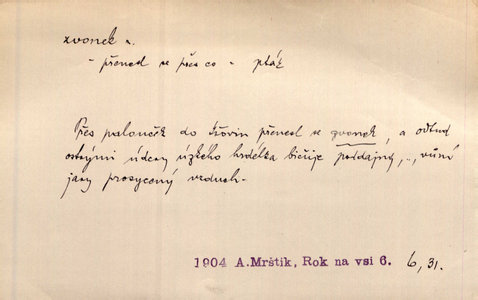 zvonek m.
- přenesl se přes co - pták
Přes palouček do křovin přenesl se zvonek, a odtud
ostrými údery úzkého hrdélka bičuje poddajný, .., vůní
jary prosycený vzduch.
1904 A.Mrštík, Rok na vsi 6. 6, 31.